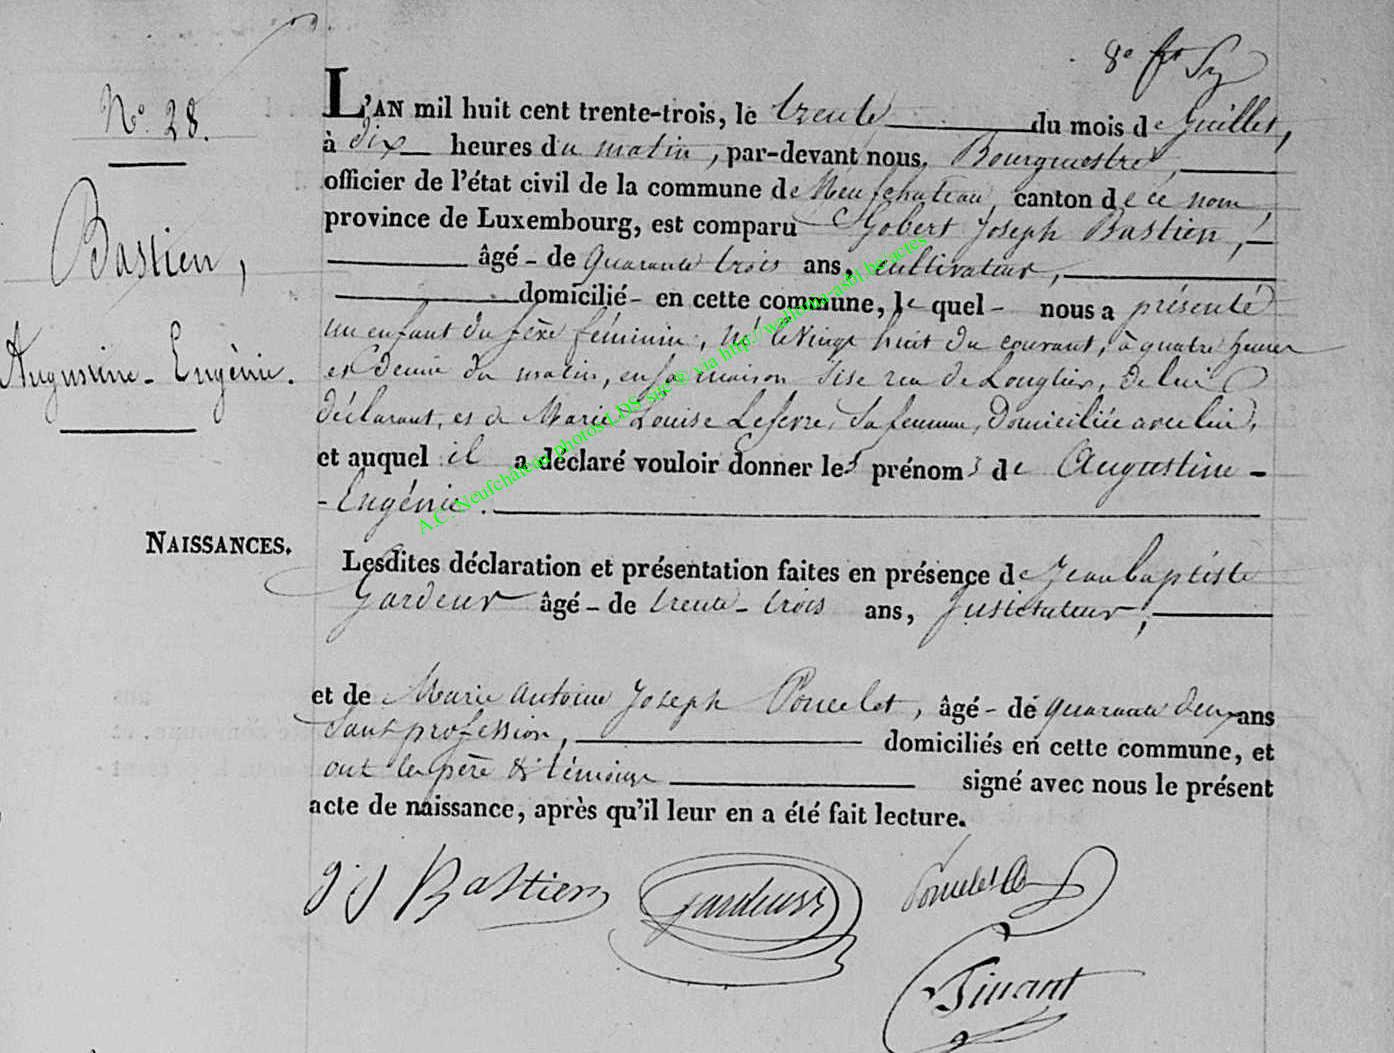 8e
N° 28.
L'AN mil huit cent trente-trois, le trente du mois de Juillet,
à dix heures du matin, par-devant nous, Bourgmestre,
officier de l'état civil de la commune de Neufchateau, canton de ce nom,
Bastien,
province de Luxembourg, est comparu Gobert Joseph Bastien,
âgé - de quarante trois ans, cultivateur,
domicilié - en cette commune, le quel - nous a présenté
Augustine - Eugénie.
un enfant du sexe féminin, né le vingt huit du courant, à quatre heures
et demie du matin, en sa maison sise rue de Longlier, de lui
déclarant, et de Marie Louise Lefevre, sa femme, domiciliée avec lui,
et auquel il a déclaré vouloir donner les prénoms de Augustine -
- Eugénie.
NAISSANCES.
Lesdites déclaration et présentation faites en présence de Jean baptiste
Gardeur âgé - de trente - trois ans, Instituteur,
et de Marie Antoine Joseph Poncelet, âgé - de quarante deux ans
sans profession, domiciliés en cette commune, et
ont les père & témoins signé avec nous le présent
acte de naissance, après qu'il leur en a été fait lecture.
J J Bastien Gardeur Poncelet
Tinant
A.C. Neufchâteau photos LDS sgc® via http://wallonia-asbl.be/actes